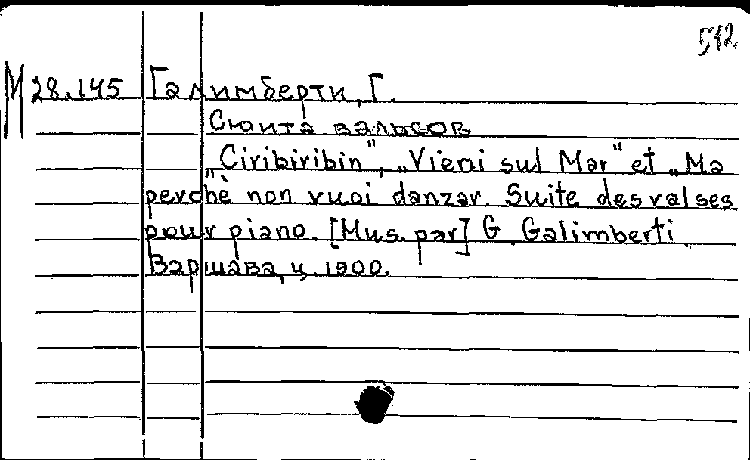 512.
М 28.145 Галимберти, Г.
Сюита вальсов
„Ciribiribin", „Vieni sul Mar" et „Ma
perchè non vuoi danzar. Suite des valses
pour piano. [Mus. par] G. Galimberti
Варшава, ц. 1900.